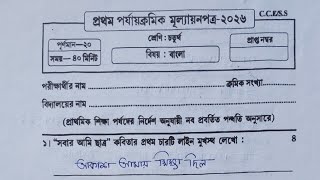 C.C.E/S.S
প্রথম পর্যায়ক্রমিক মূল্যায়নপত্র-২০২৬
পূর্ণমান—২০
শ্রেণি : চতুর্থ
প্রাপ্ত নম্বর
সময়—৪০ মিনিট
বিষয় : বাংলা
পরীক্ষার্থীর নাম
ক্রমিক সংখ্যা
বিদ্যালয়ের নাম
(প্রাথমিক শিক্ষা পর্ষদের নির্দেশ অনুযায়ী নব প্রবর্তিত পদ্ধতি অনুসারে)
১। "সবার আমি ছাত্র" কবিতার প্রথম চারটি লাইন মুখস্থ লেখো : ৪
আকাশ আমায় শিক্ষা দিল